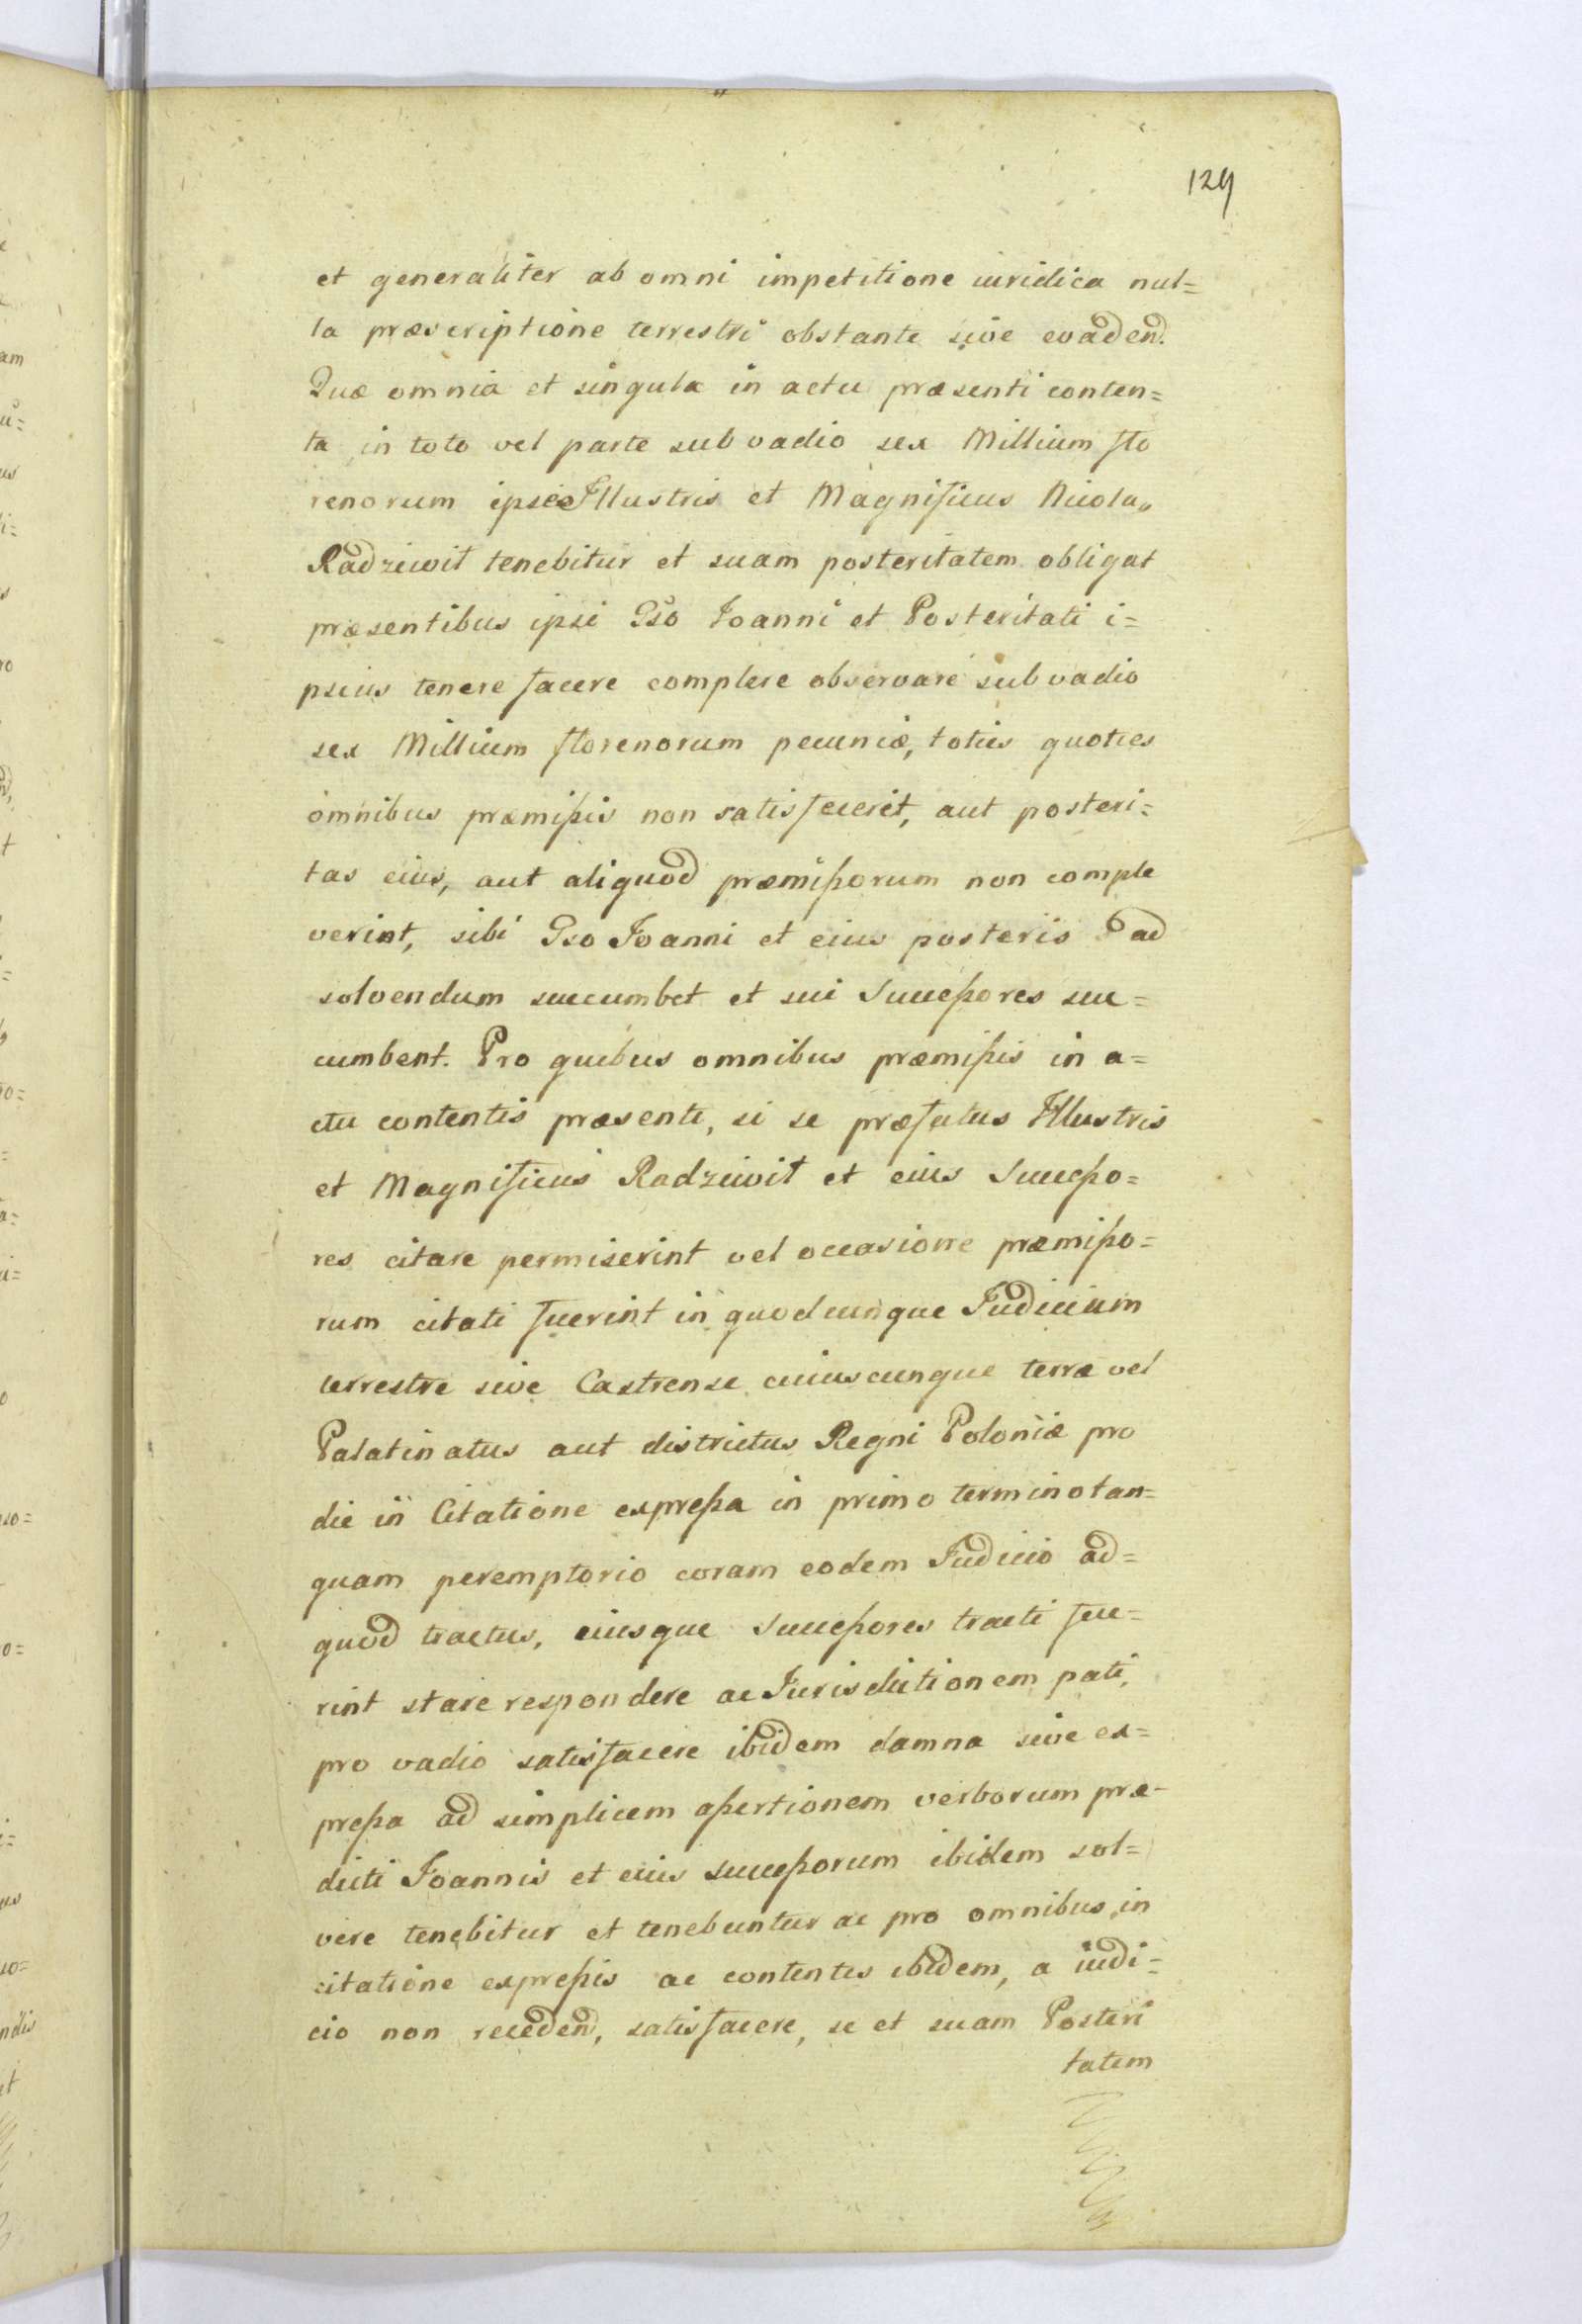 129
et generaliter ab omni impetitione iuridica nul=
la præscriptione terrestri obstante sive evadend.
Quæ omnia et singula in actu præsenti conten=
ta in toto vel parte sub vadio sex Millium flo
renorum ipse Illustris et Magnificus Nicola„
Radziwił tenebitur et suam posteritatem obligat
præsentibus ipsi Gso Joanni et Posteritati i=
psius tenere facere complere observare sub vadio
sex Millium florenorum pecuniæ, toties quoties
omnibus præmißis non satisfecerit, aut posteri=
tas eius, aut aliquod præmißorum non comple
verint, sibi Gso Joanni et eius posteris ad
solvendum succumbet et sui Succeßores suc=
cumbent. Pro quibus omnibus præmißis in a=
ctu contentis præsenti, si se præfatus Illustris
et Magnificus Radziwił et eius Succeßo=
res citare permiserint vel occasione præmißo=
rum citati fuerint in quodcunque Judicium
terrestre sive Castrense cuiuscunque terræ vel
Palatinatus aut districtus Regni Poloniæ pro
die in Citatione expreßa in primo termino tan=
quam peremptorio coram eodem Judicio ad=
quod tractus, eiusque Succeßores tracti fue=
rint stare respondere ac Jurisdictionem pati,
pro vadio satisfacere ibidem damna sive ex=
preßa ad simplicem aßertionem verborum præ-
dicti Joannis et eius succeßorum ibidem sol=
vere tenebitur et tenebuntur ac pro omnibus in
citatione expreßis ac contentis ibidem, a iudi=
cio non recedend, satisfacere, se et suam Posteri
tatem